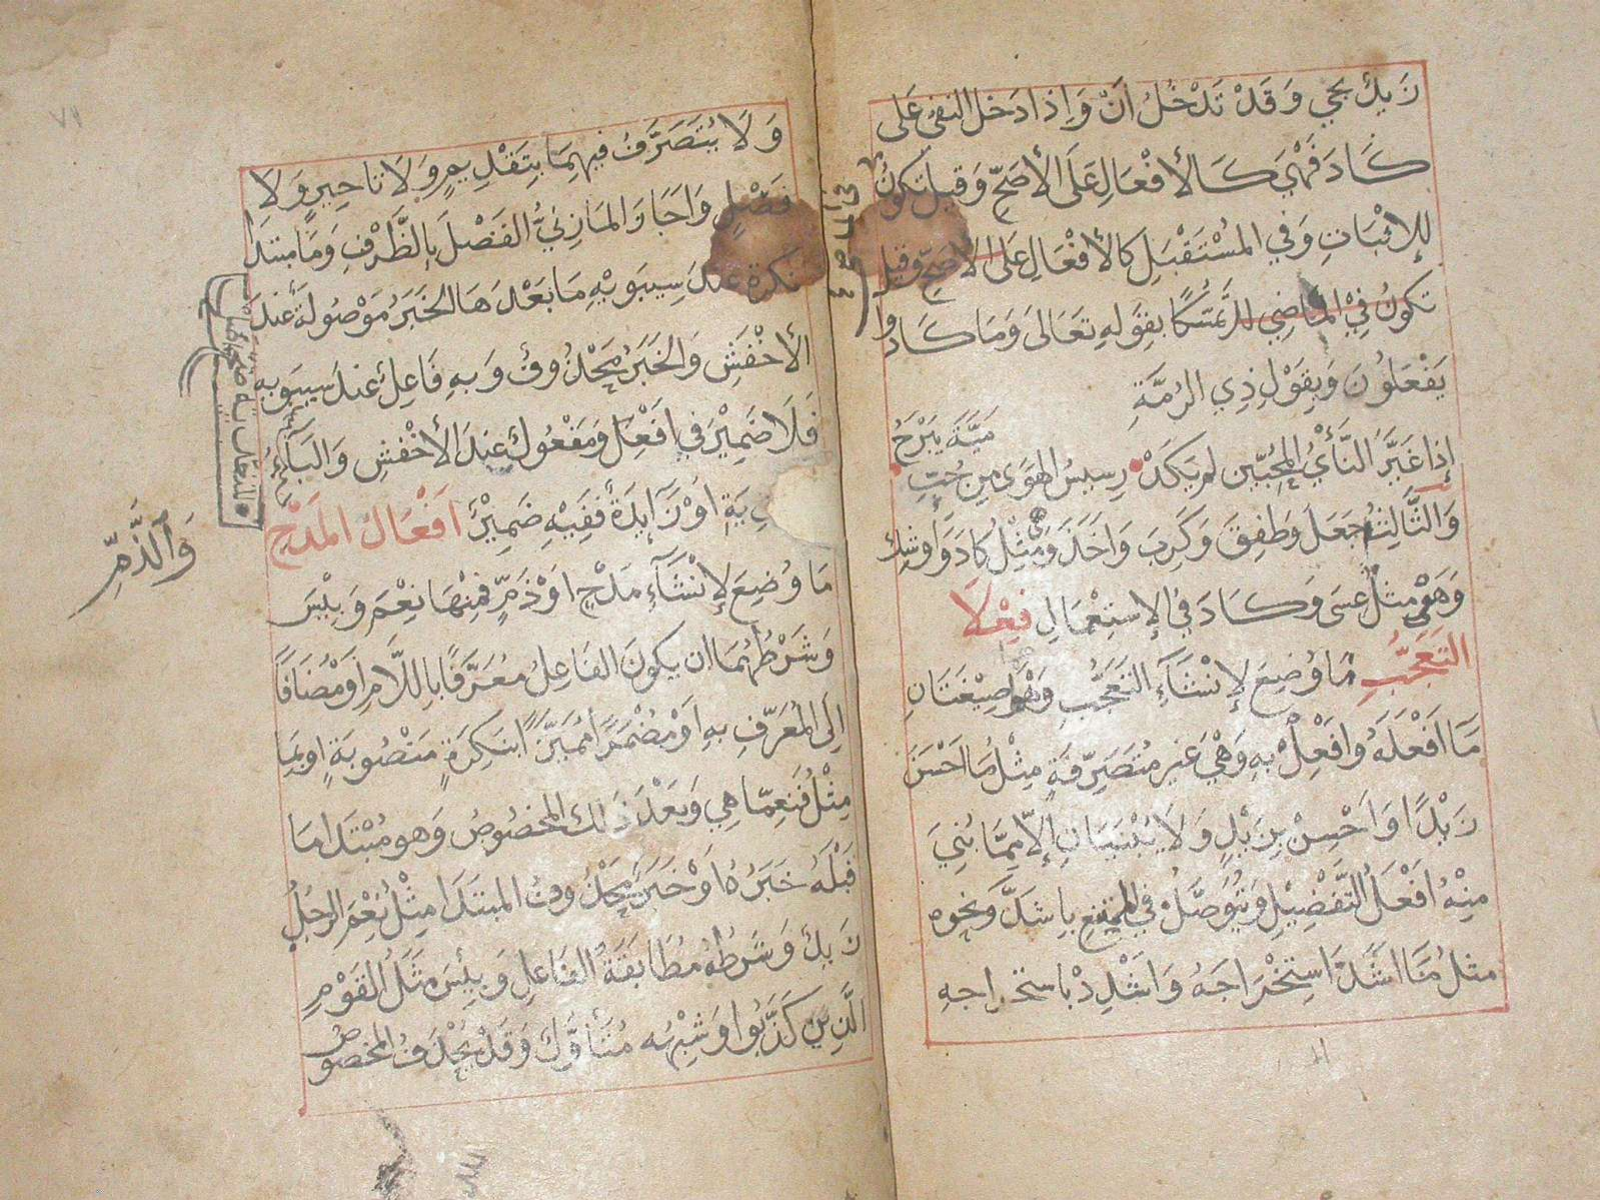 زيد يجي وقد تدخل ان واذا دخل النفي على
كاد فهي كالأفعال على الأصح وقيل تكون
للإثبات وفي المستقبل كالأفعال على الاصح وقيل
تكون في الماضي للا تمسكا بقوله تعالى وما كادوا
يفعلون وبقول ذي الرمة
إذا غير النأي المحبين لم يكد رسيس الهوى من حب
مية يبرح
والثالث جعل وطفق وكرب واخذ ومثل كاد واوشك
وهي مثل عسى وكاد في الإستعمال فعلا
التعجب ما وضع لإنشآء التعجب وهو صيغتان
ما افعله وافعل به وهي غير متصرفة مثل ما احسن
زيدا واحسن بزيد ولا يبنيان إلا مما بني
منه افعل التفضيل ويتوصل في الممتنع باشد ونحوه
مثل ما اشد استخراجه واشدد باستخراجه
ولا يتصرف فيهما بتقديم ولا تاخير ولا
فصل واجاز المازني الفصل بالظرف وما مبتدا
نكرة عند سيبويه ما بعدها الخبر موصولة عند
الأخفش والخبر محذوف وبه فاعل عند سيبويه
فلا ضمير في افعل ومفعول عند الأخفش والبآء
ية اوزآيدة ففيه ضمير افعال المدح
والذم
ما وضع لإنشآء مدح او ذم فمنها نعم وبئس
وشرطهما ان يكون الفاعل معرفا باللام او مضافا
الى المعرف به او مضمرا مميزا بنكرة منصوبة او بما
مثل فنعما هي وبعد ذلك المخصوص وهو مبتدا ما
قبله خبره او خبر محذوف المبتدا مثل نعم الرجل
زيد وشرطه مطابقة الفاعل وبئس مثل القوم
الذين كذبوا وشبهه متأول وقد يحذف المخصوص